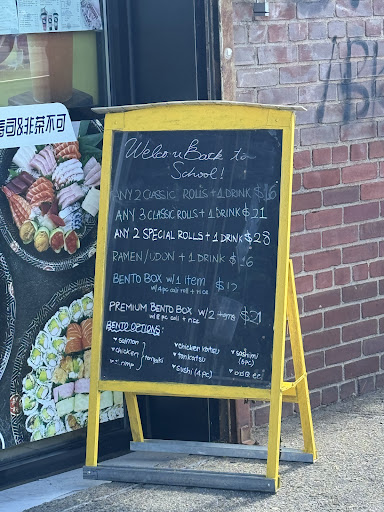 寿司&非茶不可
Welcome Back to
School!
ANY 2 CLASSIC ROLLS + 1 DRINK $16
ANY 3 CLASSIC ROLLS + 1 DRINK $21
ANY 2 SPECIAL ROLLS + 1 DRINK $28
RAMEN/UDON + 1 DRINK $16
BENTO BOX W/1 item $12
w/4pc cali roll + rice
PREMIUM BENTO BOX W/2 items $21
w/8 pc cali + rice
BENTO OPTIONS:
salmon
chicken
teriyaki
chicken katsu
tonkatsu
sushi (4pc)
sashimi
(6pc)